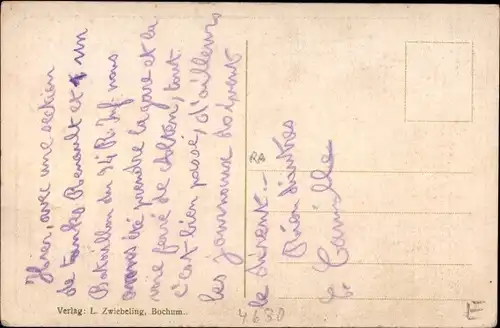 Hier, avec une section
de tanks Renault et un
Bataillon du 94 R. Inf. nous
avons été prendre la gare et la
voie ferré de Alten, tout
c'est bien passé, d'ailleurs
les journaux doivent
le dirent. -
Bien d'autres
Camille
RA
4630
E
Verlag: L. Zwiebeling, Bochum.